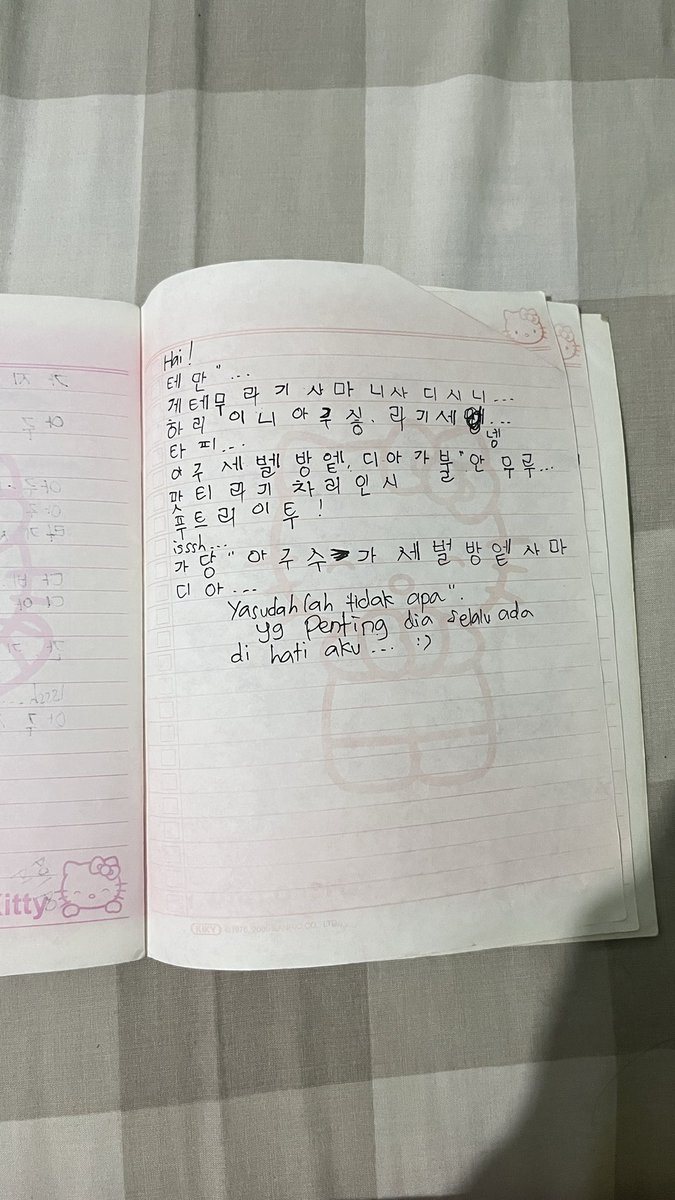 Hai!
테 만" ...
게 테무 라 기 사 마 니사 디 시 니...
하 리" 이 니 아 구 싷. 라 기 세...
넹
타 피...
아구 세 벧 방 엩, 디 아 가 불" 안 무 루...
팟 티 라 기 차 리 인 시
푸 트 리 이 투 !
isssh...
가 당" 아 구 수 가 세 벌 방 엩 사 마
디 아...
Yasudahlah tidak apa".
yg Penting dia selalu ada
di hati aku ... :)
itty